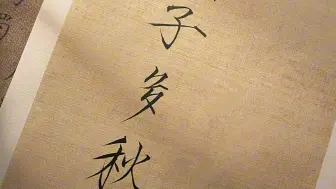 子多秋